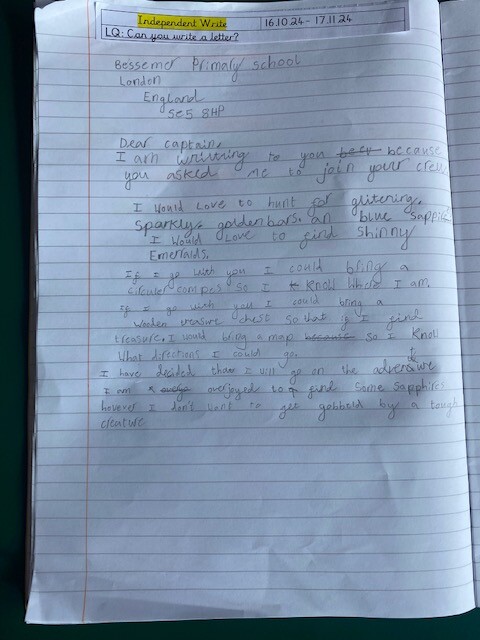 Independent Write 16.10.24 - 17.11.24
LQ: Can you write a letter?
Bessemer Primary school
London
England
SE5 8HP
Dear captain,
I am writting to you because
you asked me to join your crew
I would Love to hunt for glitening,
Sparkly, golden bars. an blue sappire
I would Love to find shinny
Emeralds.
If I go with you I could bring a
circuler compas so I know where I am.
If I go with you I could bring a
Wooden treasure chest so that if I find
treasure. I would bring a map so I know
What directions I could go.
I have decided that I will go on the
I am overjoyed to find some sapphires
hovever I don't want to get gobbeld by a tough
creature